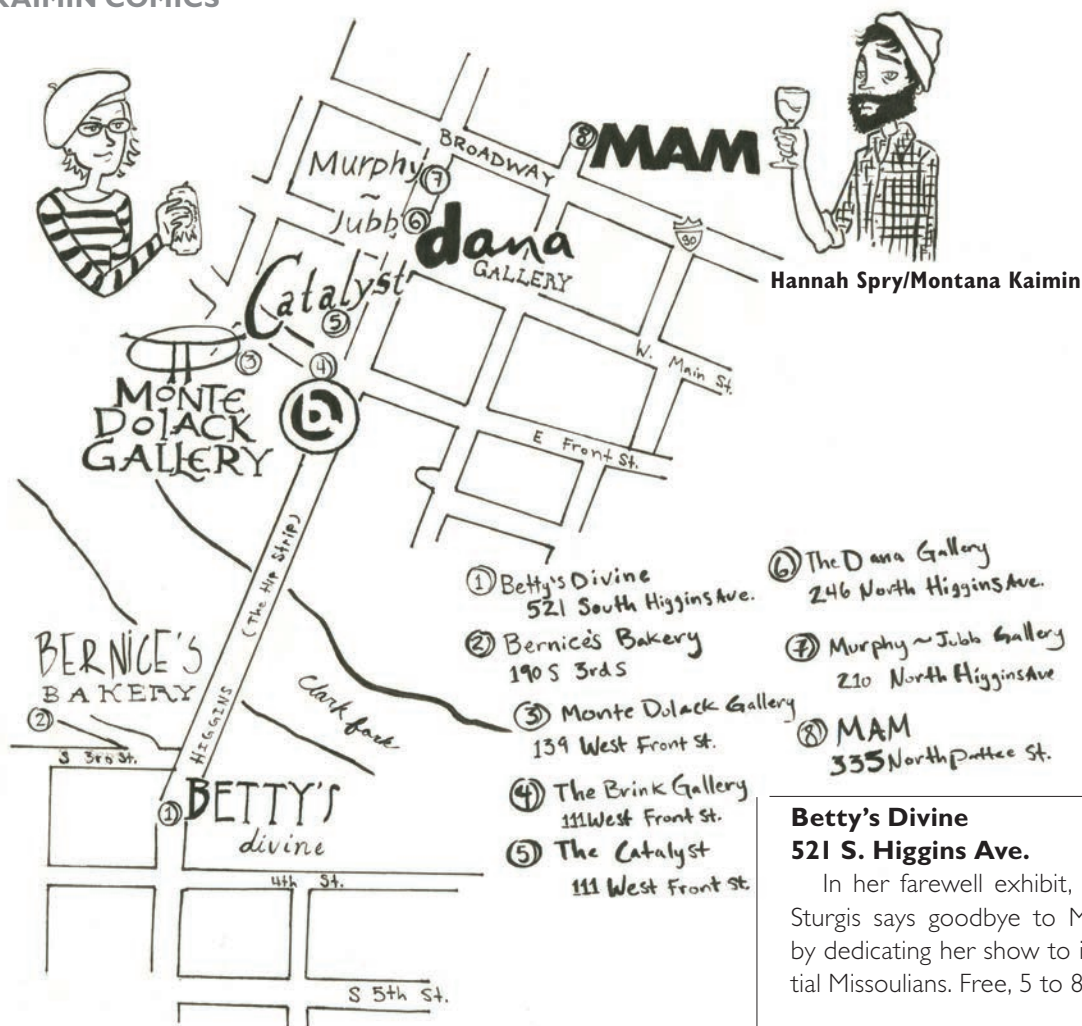 KAIMIN COMICS
BROADWAY
⑧ MAM
Murphy ⑦
~
Jubb ⑥
dana
GALLERY
90
Hannah Spry/Montana Kaimin
Catalyst
⑤
③
④
b
MONTE
DOLACK
GALLERY
W. Main St.
E Front St.
(The Hip Strip)
HIGGINS
Clark fork
BERNICE'S
BAKERY
②
S 3rd St.
① BETTY'S
divine
4th St.
S 5th St.
① Betty's Divine
521 South Higgins Ave.
② Bernice's Bakery
190 S 3rd S
③ Monte Dolack Gallery
139 West Front St.
④ The Brink Gallery
111 West Front St.
⑤ The Catalyst
111 West Front St.
⑥ The Dana Gallery
246 North Higgins Ave.
⑦ Murphy ~ Jubb Gallery
210 North Higgins Ave
⑧ MAM
335 North Pattee St.
Betty's Divine
521 S. Higgins Ave.
In her farewell exhibit,
Sturgis says goodbye to M
by dedicating her show to i
tial Missoulians. Free, 5 to 8